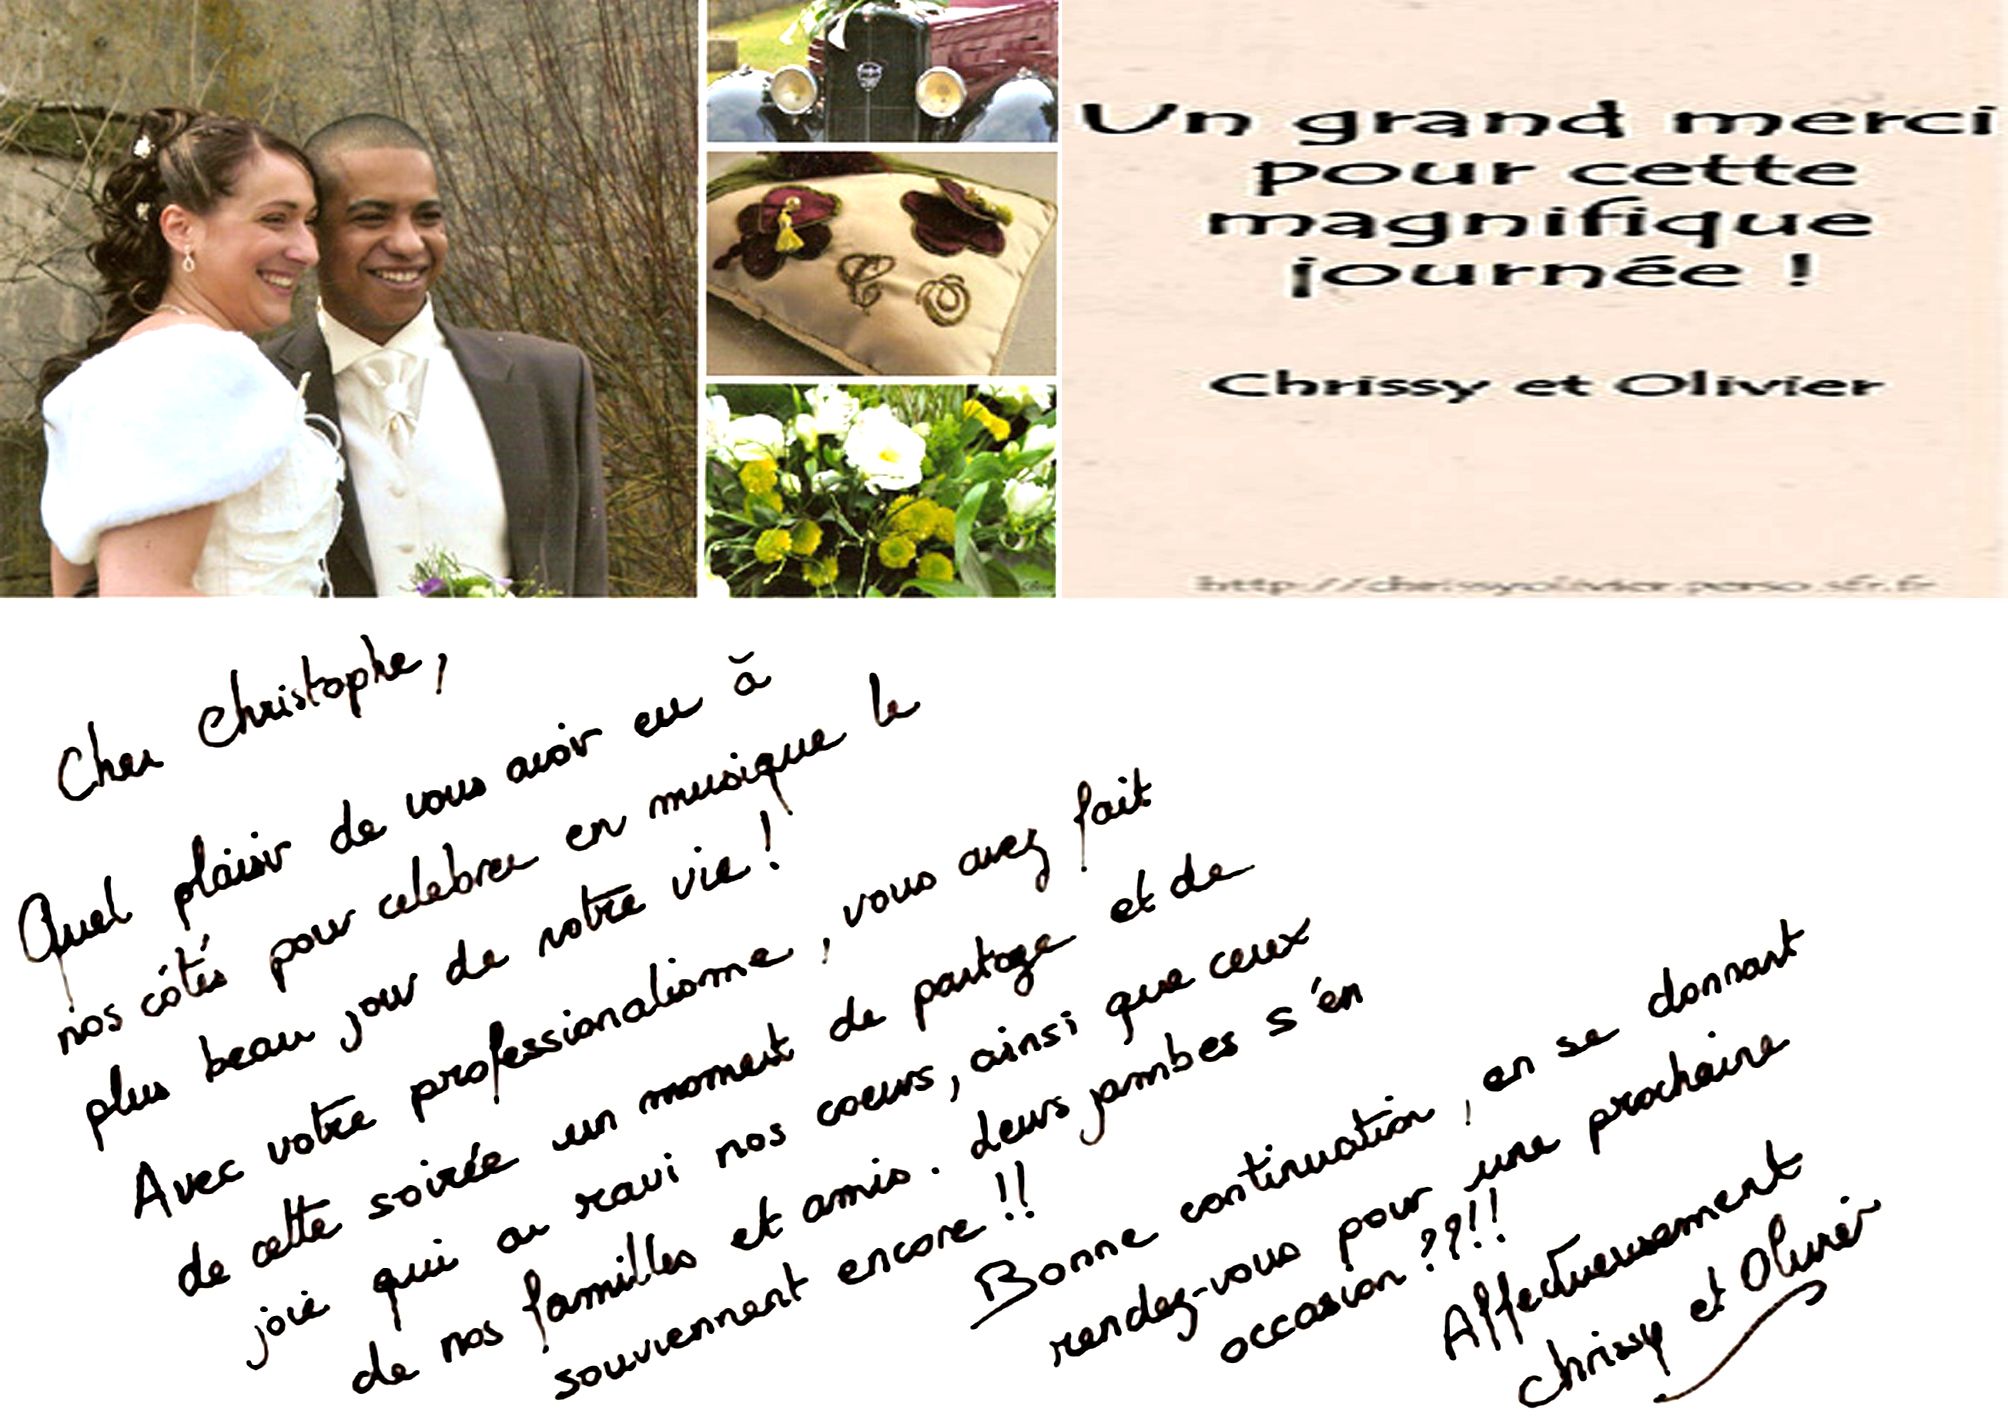 Un grand merci
pour cette
magnifique
journée !
Chrissy et Olivier
http://chrissyolivier.perso.sfr.fr
C O
Cher Christophe,
Quel plaisir de vous avoir eu à
nos côtés pour celebrer en musique le
plus beau jour de notre vie !
Avec votre professionalisme, vous avez fait
de cette soirée un moment de partage et de
joie qui a ravi nos coeurs, ainsi que ceux
de nos familles et amis. Leurs jambes s'en
souviennent encore !!
Bonne continuation, en se donnant
rendez-vous pour une prochaine
occasion ??!!
Affectueusement
Chrissy et Olivier